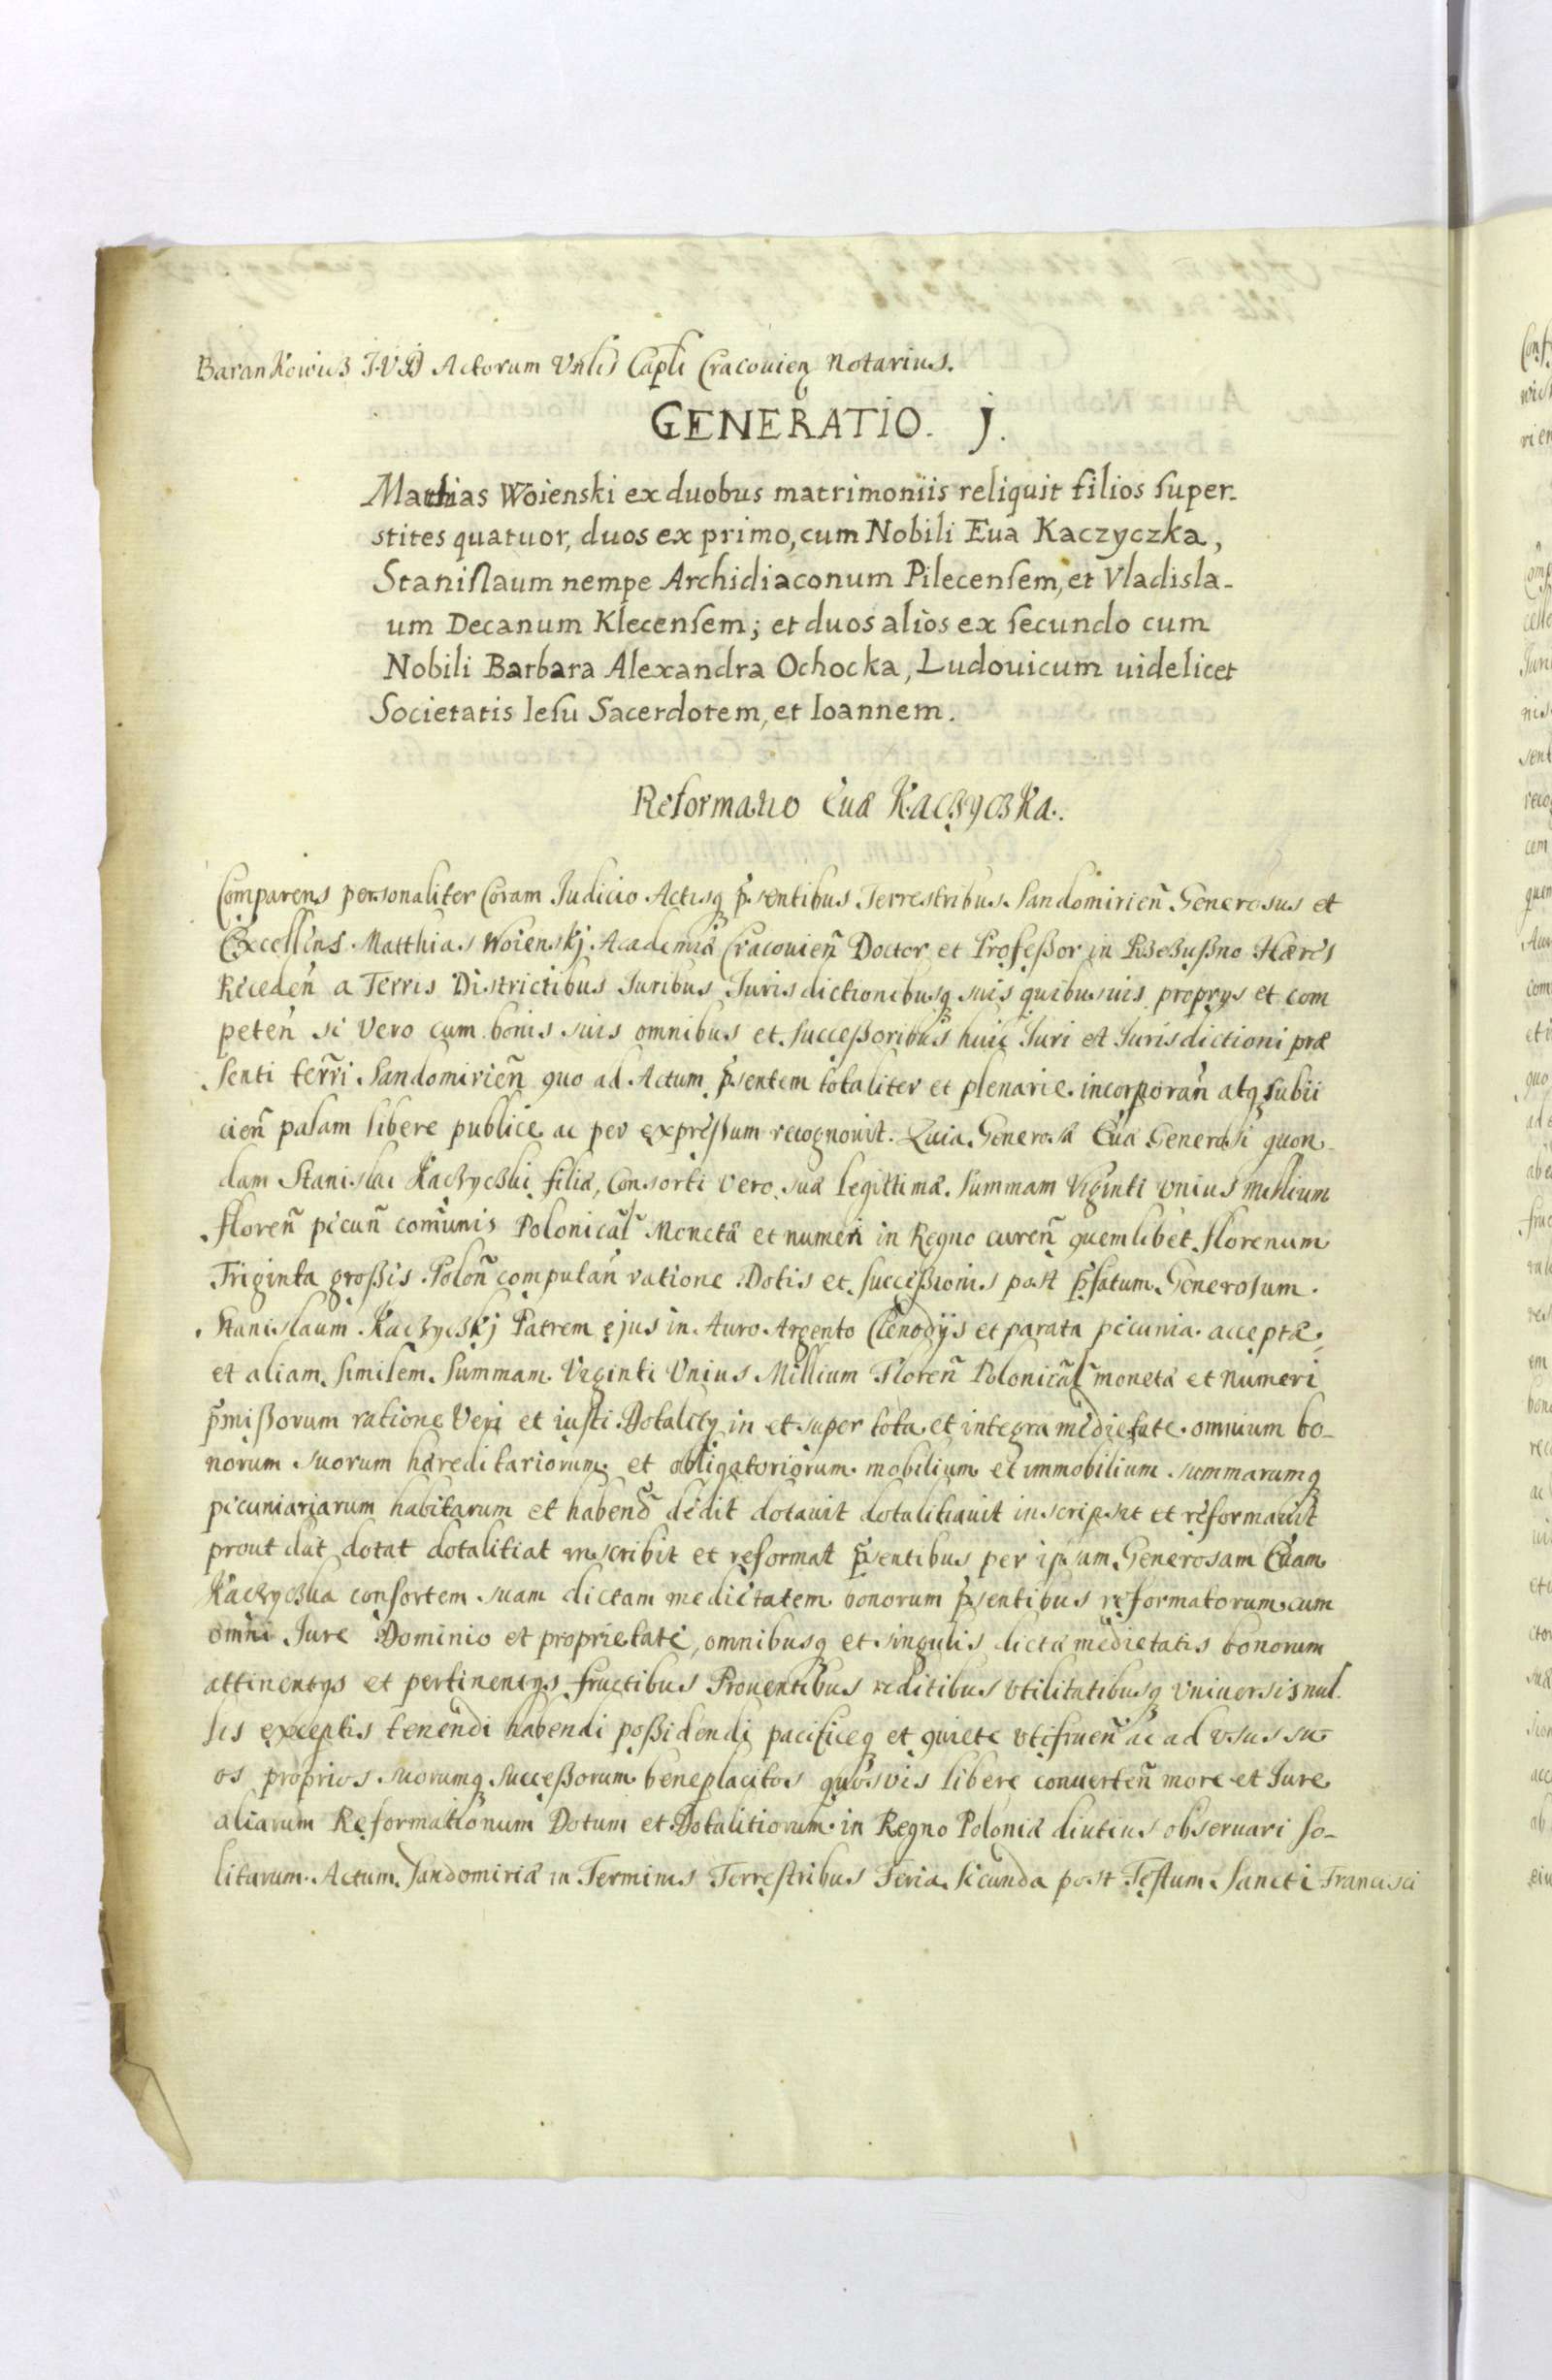 BaranKowicz J.V.D Actorum Vnlis Capli Cracouien Notarius.
GENERATIO. j.
Mathias Woienski ex duobus matrimoniis reliquit filios super-
stites quatuor, duos ex primo, cum Nobili Eua Kaczyczka,
Stanislaum nempe Archidiaconum Pilecensem, et Vladisla-
um Decanum Klecensem; et duos alios ex secundo cum
Nobili Barbara Alexandra Ochocka, Ludouicum uidelicet
Societatis Iesu Sacerdotem, et Ioannem.
Reformatio Euæ Kaczyczka.
Comparens personaliter Coram Judicio Actisq p̃sentibus Terrestribus Sandomirien̄ Generosus et
Excellens Matthias Woienskj Academiæ Cracouien̄ Doctor et Profeßor in Hæres
Receden̄ a Terris Districtibus Juribus Jurisdictionibusq suis quibusuis proprys et com
peten̄ si Vero cum bonis suis omnibus et Succeßoribus huic Juri et Jurisdictioni præ
senti terr̄i Sandomirien̄ quo ad Actum p̃sentem totaliter et plenarie incorporan̄ atq subii
cien̄ palam libere publice ac per expreßum recognouit. Quia Generosæ Euæ Generosi quon
dam Stanislai Kaczyczki filiæ, Consorti vero suæ legittimæ Summam Viginti Vnius Millium
floren̄ picun̄ com̄unis Polonical̄ Monetæ et numeri in Regno curen̄ quemlibet florenum
Triginta großis Polon̄ computan̄ ratione Dotis et Succeßionis post p̃fatum Generosum
Stanislaum Kaczyczkj Patrem ejus in Auro Argento Clenodijs et parata picunia acceptæ,
et aliam similem Summam Viginti Vnius Millium Floren̄ Polonical̄ monetæ et numeri
p̃mißorum ratione Veri et iusti Dotality in et super tota et integra medietate omnium bo-
norum suorum hæreditariorum et obligatoriorum mobilium et immobilium summarumq
picuniariarum habitarum et habend̄ dedit dotauit dotalitiauit inscripsit et reformauit
prout dat dotat dotalitiat inscribit et reformat p̃sentibus per ipsam Generosam Euam
Kaczyczka consortem suam dictam medietatem bonorum p̃sentibus reformatorum cum
omni Jure Dominio et proprietate, omnibusq et singulis dictæ medietatis bonorum
attinentys et pertinentys fructibus Prouentibus reditibus vtilitatibusq vniuersis nul
lis exceptis tenendi habendi poßidendi pacificeq et quiete vtifruen̄ ac ad vsus su
os proprios suorumq Succeßorum beneplacitos quosvis libere conuerten̄ more et Jure
aliarum Reformationum Dotum et Dotalitiorum in Regno Poloniæ diutius obseruari so-
litarum. Actum Sandomiriæ in Terminis Terrestribus Feria Secunda post Festum Sancti Francisci